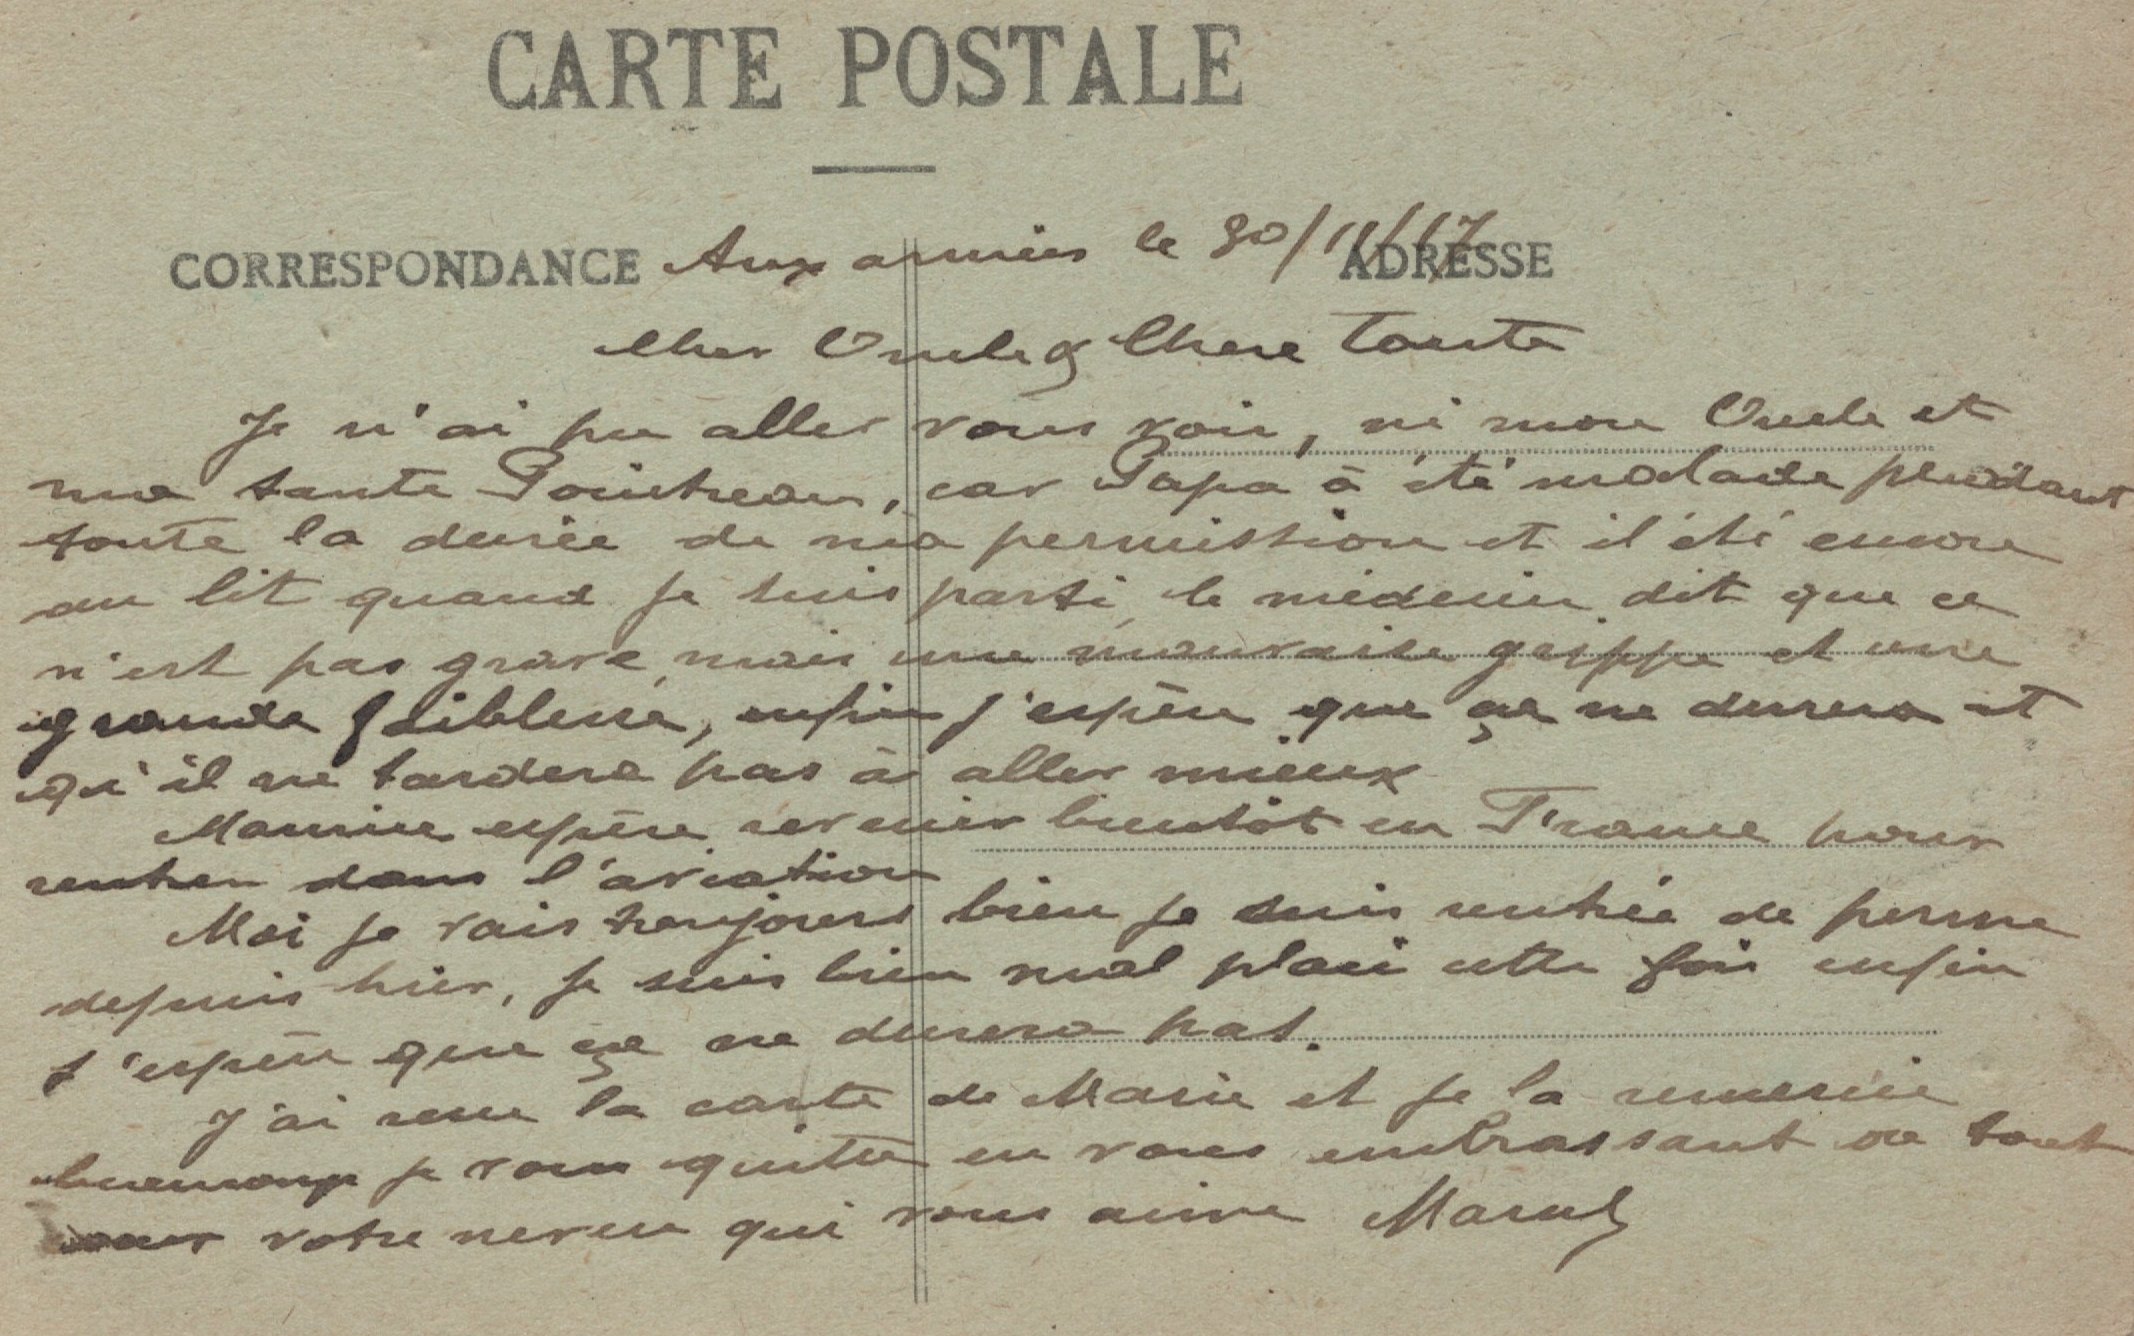 CARTE POSTALE
CORRESPONDANCE
ADRESSE
Aux armées le 30/11/17
Cher Oncle & Chere Tante
Je n'ai pu aller vous voir, ni mon Oncle et
ma tante, car Papa à été malade pendant
toute la durée de ma permission et il été encore
au lit quand je suis parti, le médecin dit que ce
n'est pas grave, mais une mauvaise grippe et une
grande faiblesse, enfin j'espère que ça ne durera et
qu'il ne tardera pas à aller mieux
Maurice espère revenir bientôt en France pour
rentrer dans l'aviation
Moi je vais toujours bien je suis rentrée de perme
depuis hier, je suis bien mal placé cette fois enfin
j'espère que ça ne durera pas.
J'ai reçu la carte de Marie et je la remercie
beaucoup je vous quitte en vous embrassant de tout
cœur votre neveu qui vous aime Marcel